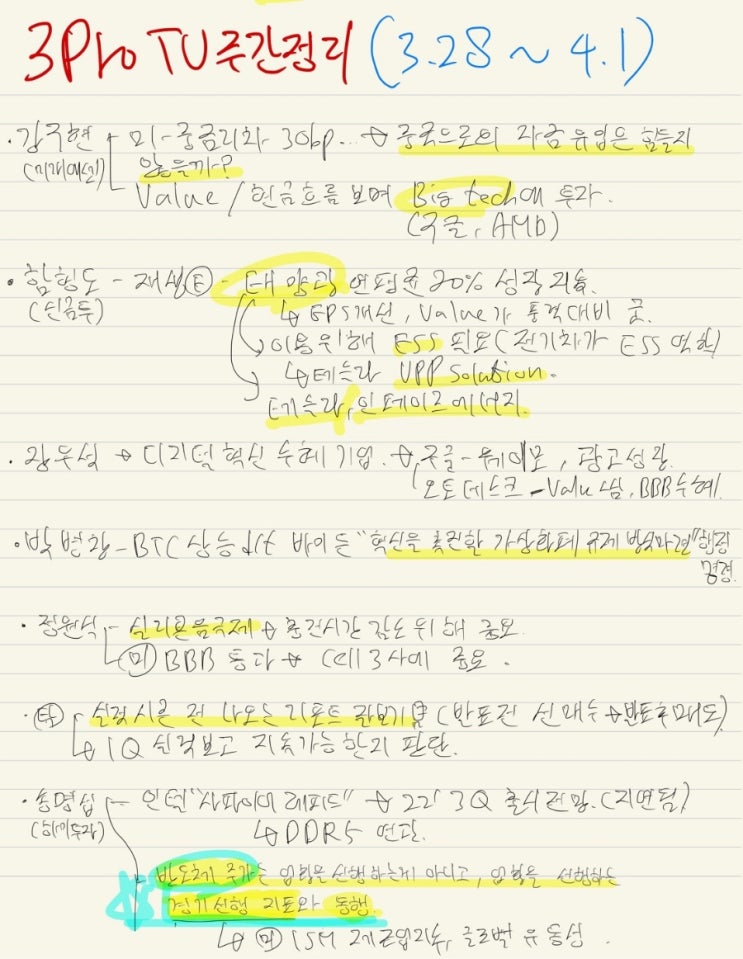 3Pro TV 주간정리 (3.28 ~ 4.1)
· 김국현 - 미-중금리차 30bp... → 중국으로의 자금 유입은 힘들지
않을까?
Value / 현금흐름 보며 Big tech에 투자.
(구글, AMD)
· 함형도 - 재생 E - 태양광 연평균 20% 성장 지속.
(신금투)
↳ EPS개선, Value가 통적대비
이용위해 ESS 필요 (전기차가 ESS 역할)
↳ 테슬라 VPP Solution.
테슬라, 인페이즈에너지.
· 장우석 → 디지털 혁신 수혜 기업. → 구글 - 웨이모, 광고성장.
오토데스크 - BBB수혜.
· 박병창 - BTC 상승 바이든 "혁신을 촉진할 가상화폐 규제 방식마련" 행정
명령.
· 정원석 - 실리콘음극제 → 충전시간 감소 위해 중요
미 BBB 통과 → Cell 3사에 중요.
실적시즌 전 나오는 리포트 (발표전 선매수 → 발표후매도)
↳ 1Q 실적보고 지속가능한지 판단.
· 송명섭 - 인텔 "사파이어 래피드" → 22' 3Q 출시전망. (지연됨)
(하이투자)
↳ DDR5 연관.
반도체 주가는 업황을 선행하는게 아니고, 업황을 선행하는
경기선행 지표와 동행.
↳ 미 ISM 제조업지수, 글로벌 유동성.